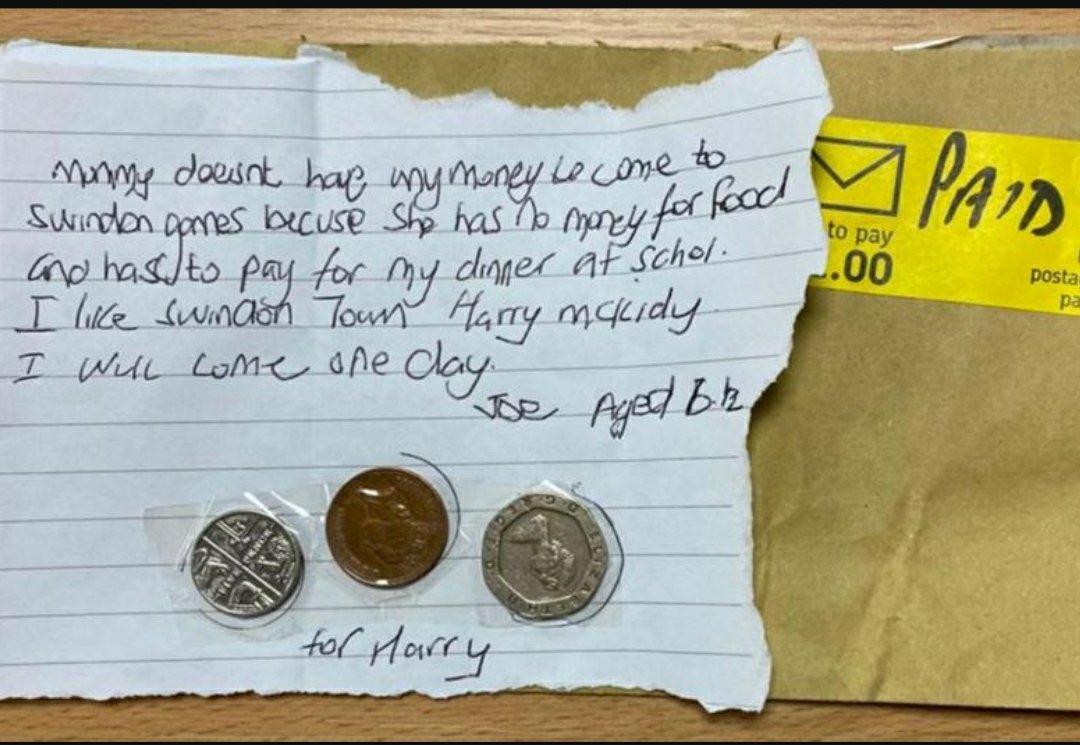 Mummy doesnt have any money to come to
Swindon games becuse she has no money for food
and hass to pay for my dinner at schol.
I like Swindon Town Harry mckidy
I will come one day.
Joe Aged 6.½
for Harry
PAID
to pay
.00
posta
pa
FIVE PENCE
ELIZABETH II D G REG F D